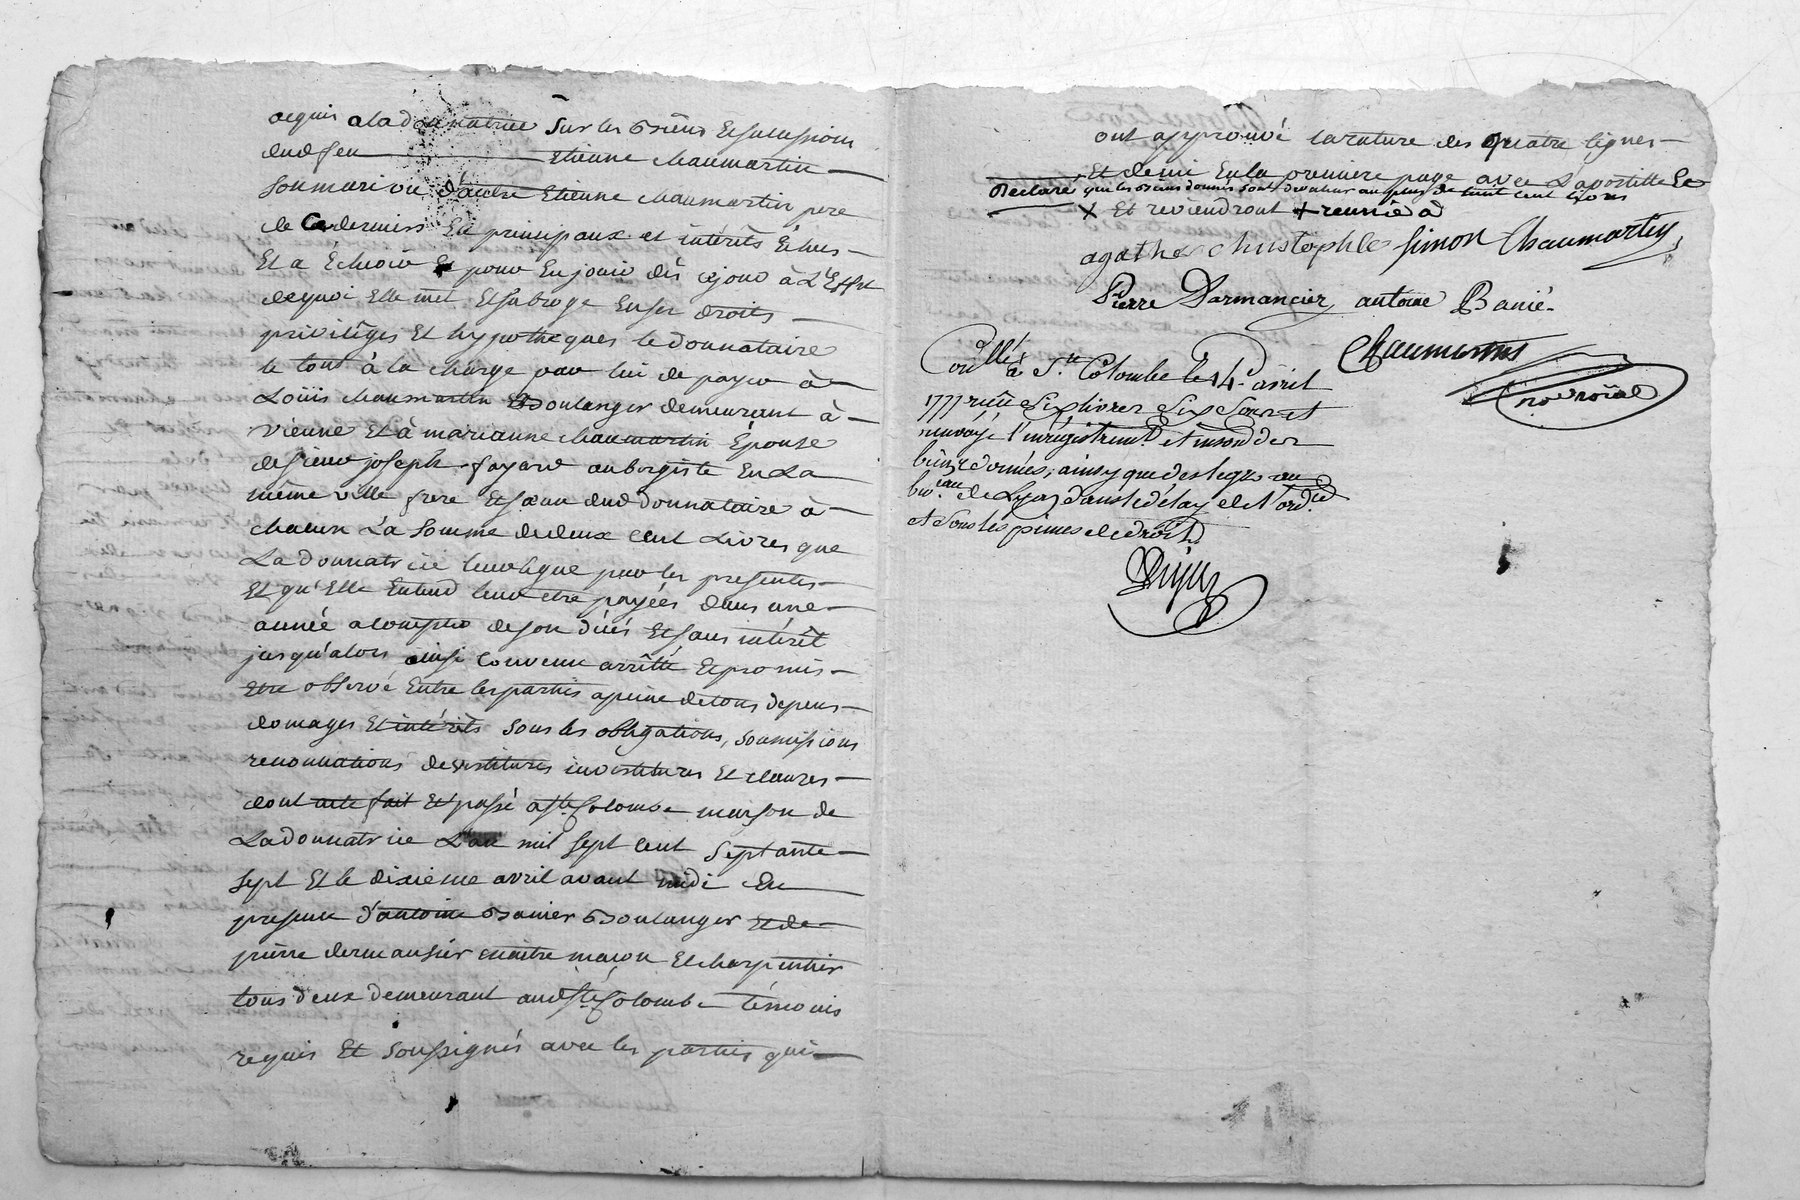 acquis a la donnatrice sur les Biens Et sucession
dud feu Etienne chaumartin
son mari ou d'autre Etienne chaumartin pere
de Ce dernier En principaux et intérêts Echus
Et a Echeoir Et pour En jouir dès cejour à L'Effet
dequoi Elle met Et subroge En ses droits
privilèges Et hypotheques le donnataire
le tout à la charge par lui de payer à
Loüis chaumartin Boulanger demeurant à
vienne Et à marianne chaumartin Épouse
de sieur joseph fayard aubergiste En La
même ville frere Et sœur dud donnataire à
chacun La somme de deux cent Livres que
La donnatrice leur legue par les presentes
Et qu'Elle Entend leur etre payées dans une
année a compter de son décés Et sans intérêt
jusqu'alors ainsi convenu arrêtté Et promis
Etre observé Entre les parties a peine de tous depens
domages Et intérêts sous les obligations, soumissions
renonciations devestitures investitures Et clauses
dont acte fait Et passé a Ste Colombe maison de
La donnatrice L'an mil sept cent septante
sept Et le dixieme avril avant midi En
presence d'antoine Banier Boulanger Et de
pierre dermansier maitre maçon Et charpentier
tous deux demeurant aud Ste Colombe témoins
requis Et soussignés avec les parties qui
ont approuvé la rature des quatre lignes
Et demi En la premiere page avec L'apostille Et
Declaré que les Biens donnés sont de valeur au plus de huit cent livres
+ Et reviendront + reunie a
agathe christophle simon Chaumartin
Pierre Darmancier antoine Banié
Chaumartin
no. roïal
Con.llé à Ste Colombe le 14e avril
1777 reçu Six livres Six Sous et
renvoyé l'enregistremt et insinon des
biens donnés, ainsy que des legs au
bureau de Lyon dans le délay de l'ordce
et Sous les peines de droit